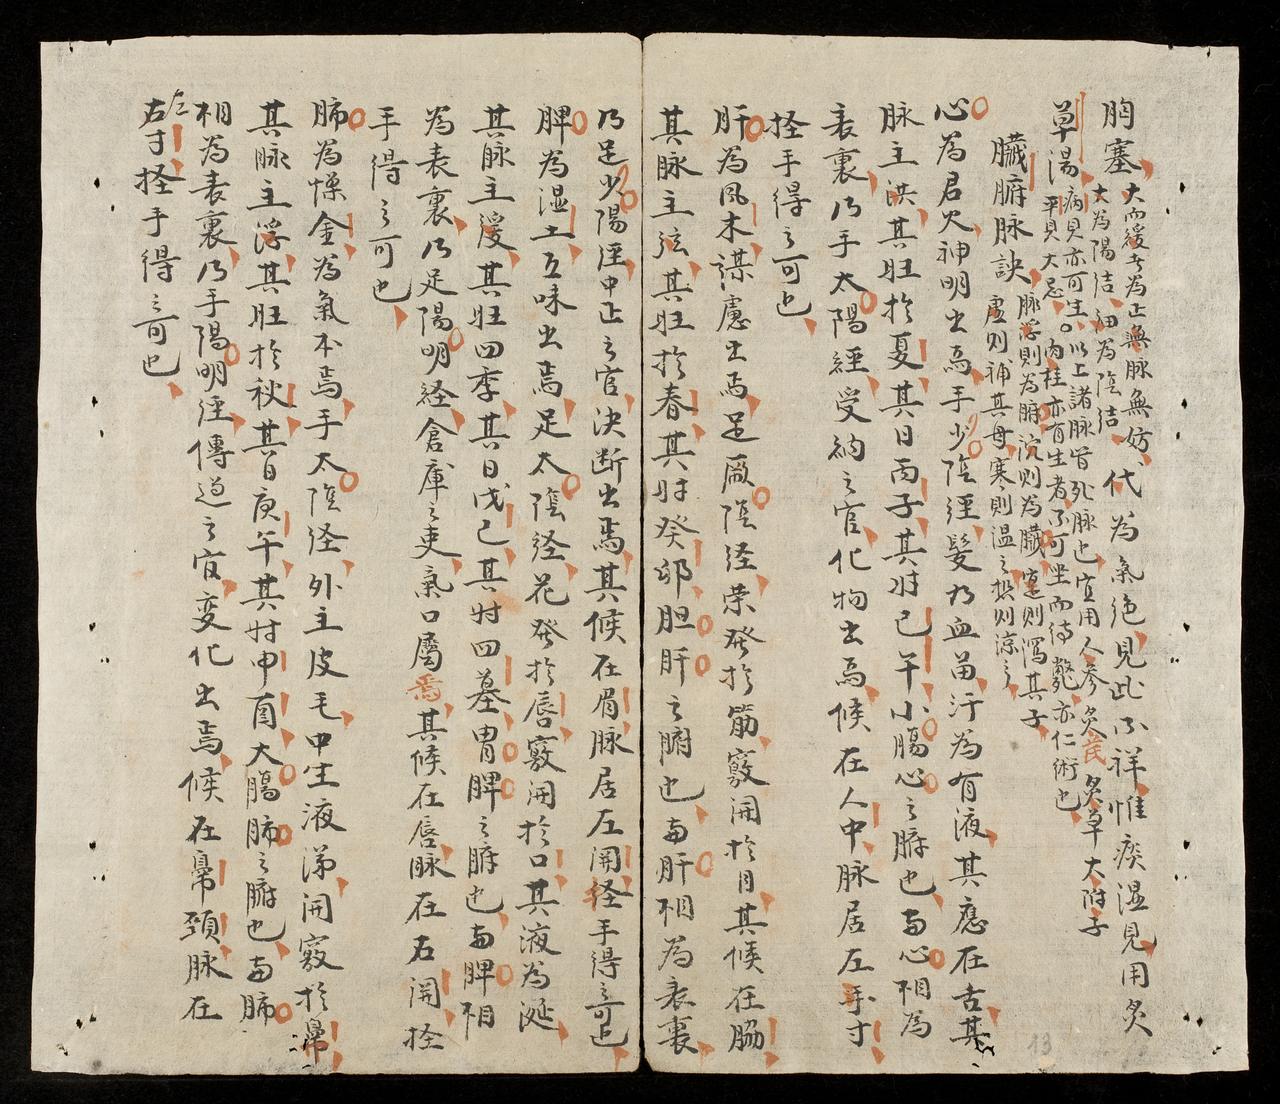 胸塞大而緩者為正無脉無妨代為氣絶見此不祥惟痰湿見用炙
大為陽結細為陰結
草湯病見亦可生以上諸脉皆死脉也宜用人參炙芪炙草大附子
平貝大忌肉桂亦有生者不可坐而待斃亦仁術也
臟腑脉訣脉浮則為腑沉則為臟寔則瀉其子
虛則補其母寒則温之热則凉之
心為君火神明出焉手少陰經髪乃血苗汗為有液其應在舌其
脉主洪其旺於夏其日丙子其时巳午小腸心之腑也与心相為
表裏乃手太陽經受納之官化物出焉候在人中脉居左手寸
挃手得之可也
肝為風木謀慮出焉足厥陰経荣発於筋竅開於目其候在脇
其脉主弦其旺於春其时癸卯胆肝之腑也与肝相為表裏
乃足少陽經中正之官决断出焉其候在眉脉居左関経手得之可也
脾為湿土五味出焉足太陰経花発於唇竅開於口其液為涎
其脉主緩其旺四季其日戊己其时四墓胃脾之腑也与脾相
為表裏乃足陽明経倉庫之吏氣口屬焉其候在唇脉在右関挃
手得之可也
肺為燥金為氣本焉手太陰経外主皮毛中生液涕開竅於鼻
其脉主浮其旺於秋其日庚午其时申酉大腸肺之腑也与肺
相為表裏乃手陽明經傳道之官变化出焉候在鼻頚脉在
左右寸挃手得之可也
13